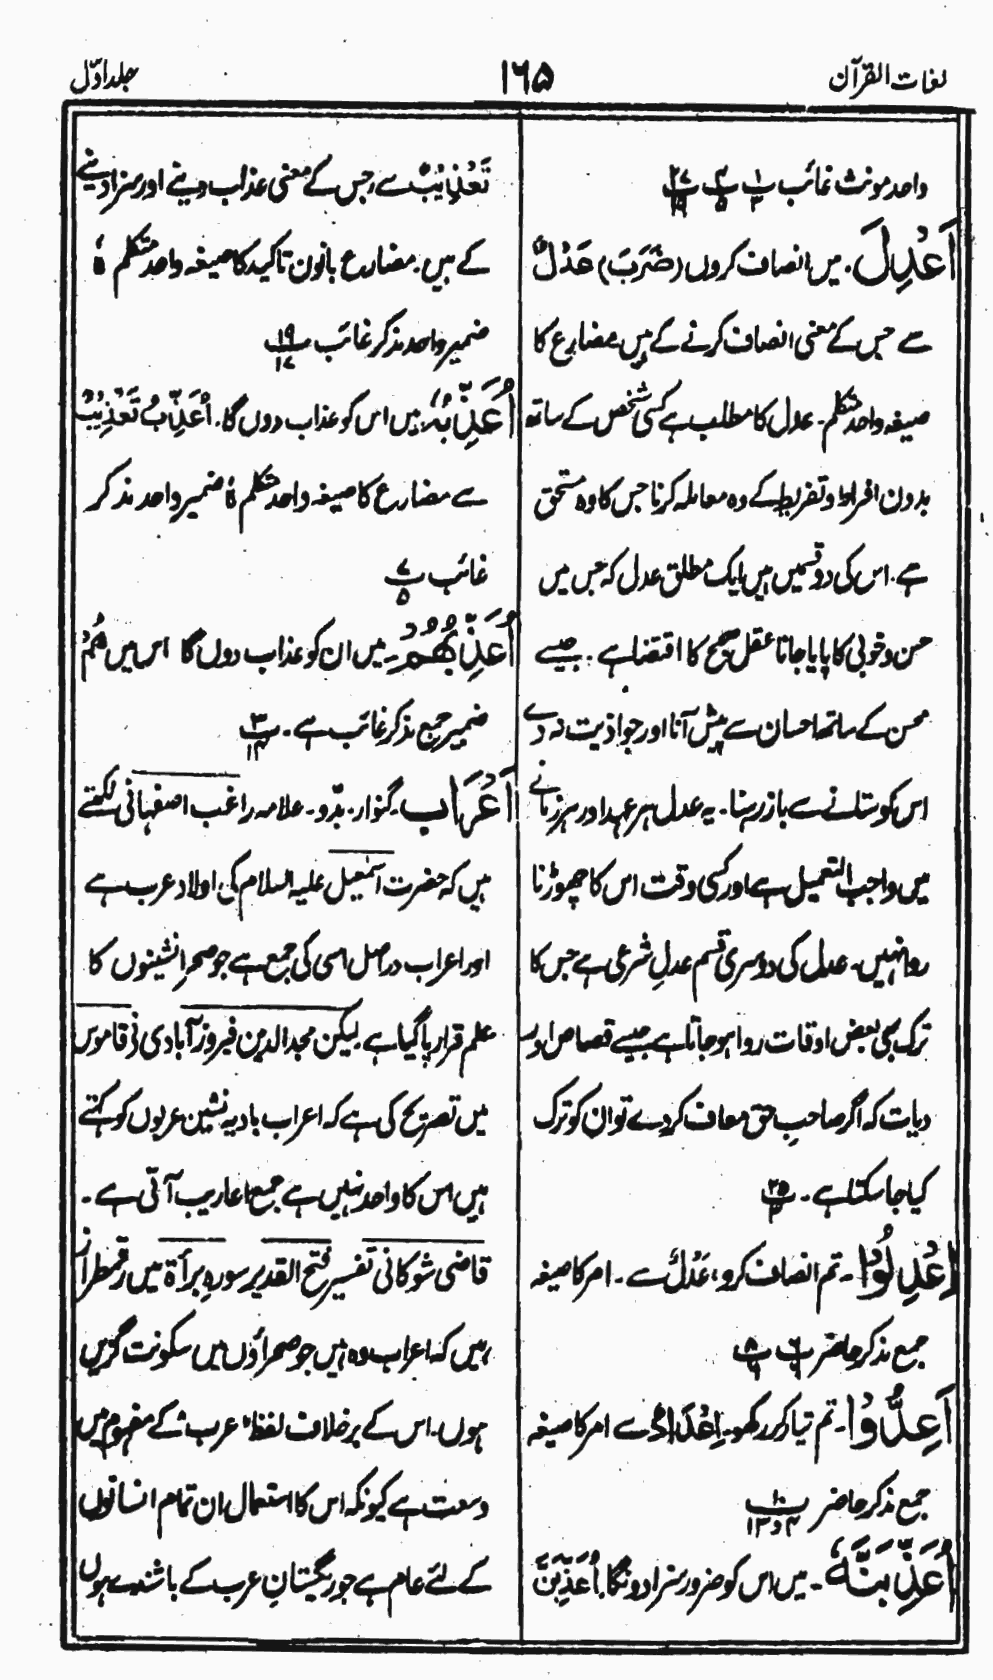 لغات القرآن
۱۶۵
جلد اوّل
واحد مونث غائب
اَعْدِلَ۔ میں انصاف کروں (ضَرَبَ) عَدْلٌ
سے جس کے معنی انصاف کرنے کے ہیں مضارع کا
صیغہ واحد متکلم۔ عدل کا مطلب ہے کسی شخص کے ساتھ
بدون افراط و تفریط کے وہ معاملہ کرنا جس کا وہ مستحق
ہے۔ اس کی دو قسمیں ہیں ایک مطلق عدل کہ جس میں
حسن و خوبی کا پایا جانا عقل صحیح کا اقتضا ہے۔ جیسے
محسن کے ساتھ احسان سے پیش آنا اور جو اذیت نہ دے
اس کو ستانے سے باز رہنا۔ یہ عدل ہر عہد اور ہر زمانے
میں واجب التعمیل ہے اور کسی وقت اس کا چھوڑنا
روا نہیں۔ عدل کی دوسری قسم عدلِ شرعی ہے جس کا
ترک بھی بعض اوقات روا ہو جاتا ہے جیسے قصاص اور
دیات کہ اگر صاحبِ حق معاف کر دے تو ان کو ترک
کیا جا سکتا ہے۔
اِعْدِلُوْا۔ تم انصاف کرو، عَدْلٌ سے۔ امر کا صیغہ
جمع مذکر حاضر
اَعِدُّوْا۔ تم تیار کر رکھو۔ اِعْدَادٌ سے امر کا صیغہ
جمع مذکر حاضر پ۱۰ ۳ و ۱۳
اُعَذِّبَنَّهٗ۔ میں اس کو ضرور سزا دونگا۔ اُعَذِّبَنَّ
تَعْذِیْبٌ سے، جس کے معنی عذاب دینے اور سزا دینے
کے ہیں۔ مضارع بانون تاکید کا صیغہ واحد متکلم ہٗ
ضمیر واحد مذکر غائب پ۱۹ ۱۷
اُعَذِّبُهٗ۔ میں اس کو عذاب دوں گا۔ اُعَذِّبُ تَعْذِیْبٌ
سے مضارع کا صیغہ واحد متکلم ہٗ ضمیر واحد مذکر
غائب پ۷ ۵
اُعَذِّبُهُمْ۔ میں ان کو عذاب دوں گا اس میں هُمْ
ضمیر جمع مذکر غائب ہے۔ پ۳ ۱۴
اَعْرَاب۔ گنوار، بدّو۔ علامہ راغب اصفہانی لکھتے
ہیں کہ حضرت اسمٰعیل علیہ السلام کی اولاد عرب ہے
اور اعراب دراصل اسی کی جمع ہے جو صحرا نشینوں کا
علم قرار پا گیا ہے۔ لیکن مجد الدین فیروز آبادی نے قاموس
میں تصریح کی ہے کہ اعراب بادیہ نشین عربوں کو کہتے
ہیں اس کا واحد نہیں ہے جمع اعاریب آتی ہے۔
قاضی شوکانی تفسیر فتح القدیر سورہ برأۃ میں رقمطراز
ہیں کہ اعراب وہ ہیں جو صحراؤں میں سکونت گزیں
ہوں۔ اس کے برخلاف لفظ "عرب" کے مفہوم میں
وسعت ہے کیونکہ اس کا استعمال ان تمام انسانوں
کے لئے عام ہے جو ریگستانِ عرب کے باشندے ہوں